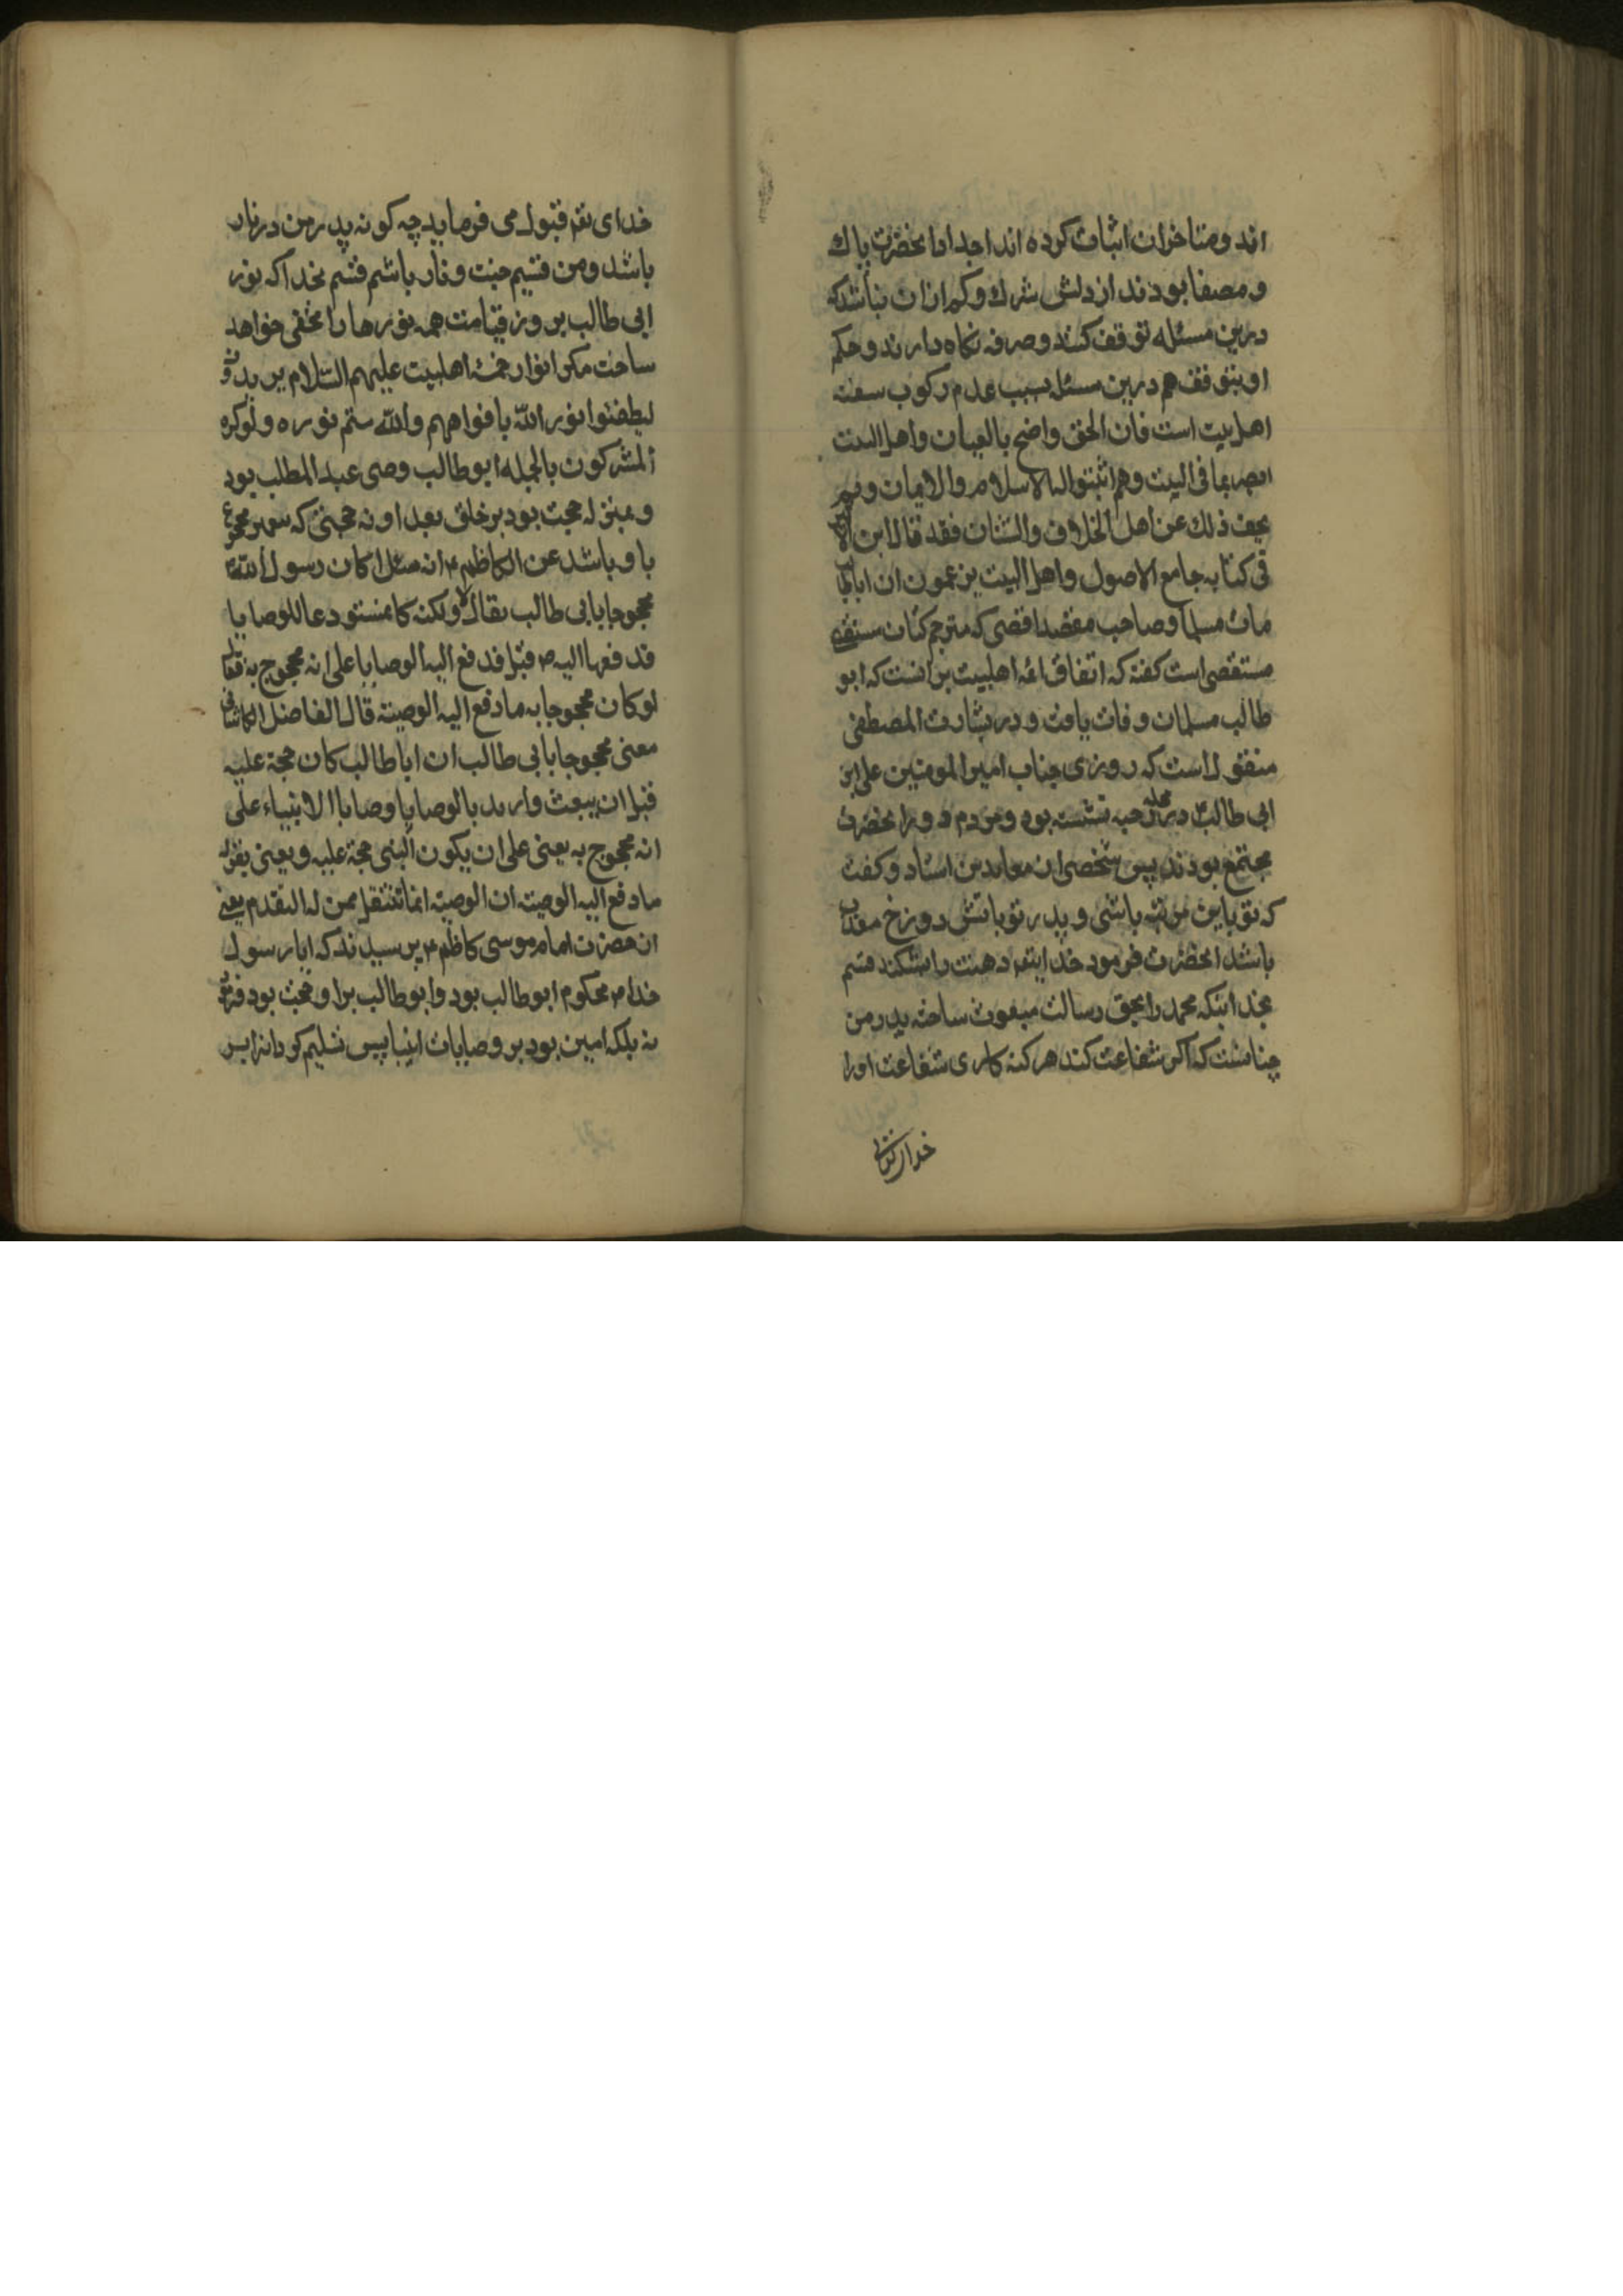 اند و متاخران اثبات کرده اند اجداد انحضرت پاک
و مصفا بودند از دنس شرک و کم ازان نباشد که
درین مسئله توقف کنند و صرفه نکاه دارند و حکم
او بتوقف هم درین مسئله بسبب عدم رکوب سفینه
اهل بیت است فان الحق واضح بالعیان و اهل البیت
ابصر بما فی البیت و هم اثبتوا له الاسلام و الایمان و لم
یخف ذلک عن اهل الخلاف و الشنان فقد قال ابن الاثیر
فی کتابه جامع الاصول و اهل البیت یزعمون ان اباطالب
مات مسلما و صاحب مقصد اقصی که مترجم کتاب
مستقصی است کفته که اتفاق ائمه اهلبیت برانست که ابو
طالب مسلمان وفات یافت و در بشارت المصطفی
منقول است که روزی جناب امیر المومنین علی ابن
ابی طالب در محله رحبه نشسته بود و مردم دور انحضرت
مجتمع بودند پس شخصی از معاندین استاد و کفت
که تو باین مرتبه باشی و پدر تو باتش دوزخ معذب
باشد انحضرت فرمود خدایتعم دهنت را بشکند قسم
بخدائیکه محمد را بحق رسالت مبعوث ساخته پدر من
چنانست که اکر شفاعت کند هر کنه کاری شفاعت اورا
خدای تعم قبول می فرماید چه کونه پدر من در نار
باشد و من قسیم جنت و نار باشم قسم بخدا که نور
ابی طالب بروز قیامت همه نورها را مخفی خواهد
ساخت مکر انوار خمسه اهلبیت علیهم السلام یریدون
لیطفئوا نور الله بافواههم و الله متم نوره و لو کره
المشرکون بالجمله ابوطالب وصی عبد المطلب بود
و بمنزله حجت بود بر خلق بعد او نه حجتی که پیغمبر محجوج
باو باشد عن الکاظم ع انه سئل اکان رسول الله ص
محجوجا بابی طالب فقال لا و لکنه کان مستودعا للوصایا
فدفعها الیه ص قیل فدفع الیه الوصایا علی انه محجوج به فقال
لو کان محجوجا به ما دفع الیه الوصیة قال الفاضل الکاشانی
معنی محجوجا بابی طالب ان اباطالب کان حجة علیه
قبل ان یبعث و ارید بالوصایا وصایا الانبیاء علی
انه محجوج به یعنی علی ان یکون النبی حجة علیه و یعنی بقوله
ما دفع الیه الوصیة ان الوصیة انما تنتقل ممن له التقدم یعنی
ان حضرت امام موسی کاظم ع پرسیدند که ایا رسول
خدا ص محکوم ابوطالب بود و ابوطالب براو حجت بود فرمود
نه بلکه امین بود بر وصایات انبیا پس تسلیم کرد انرا بر